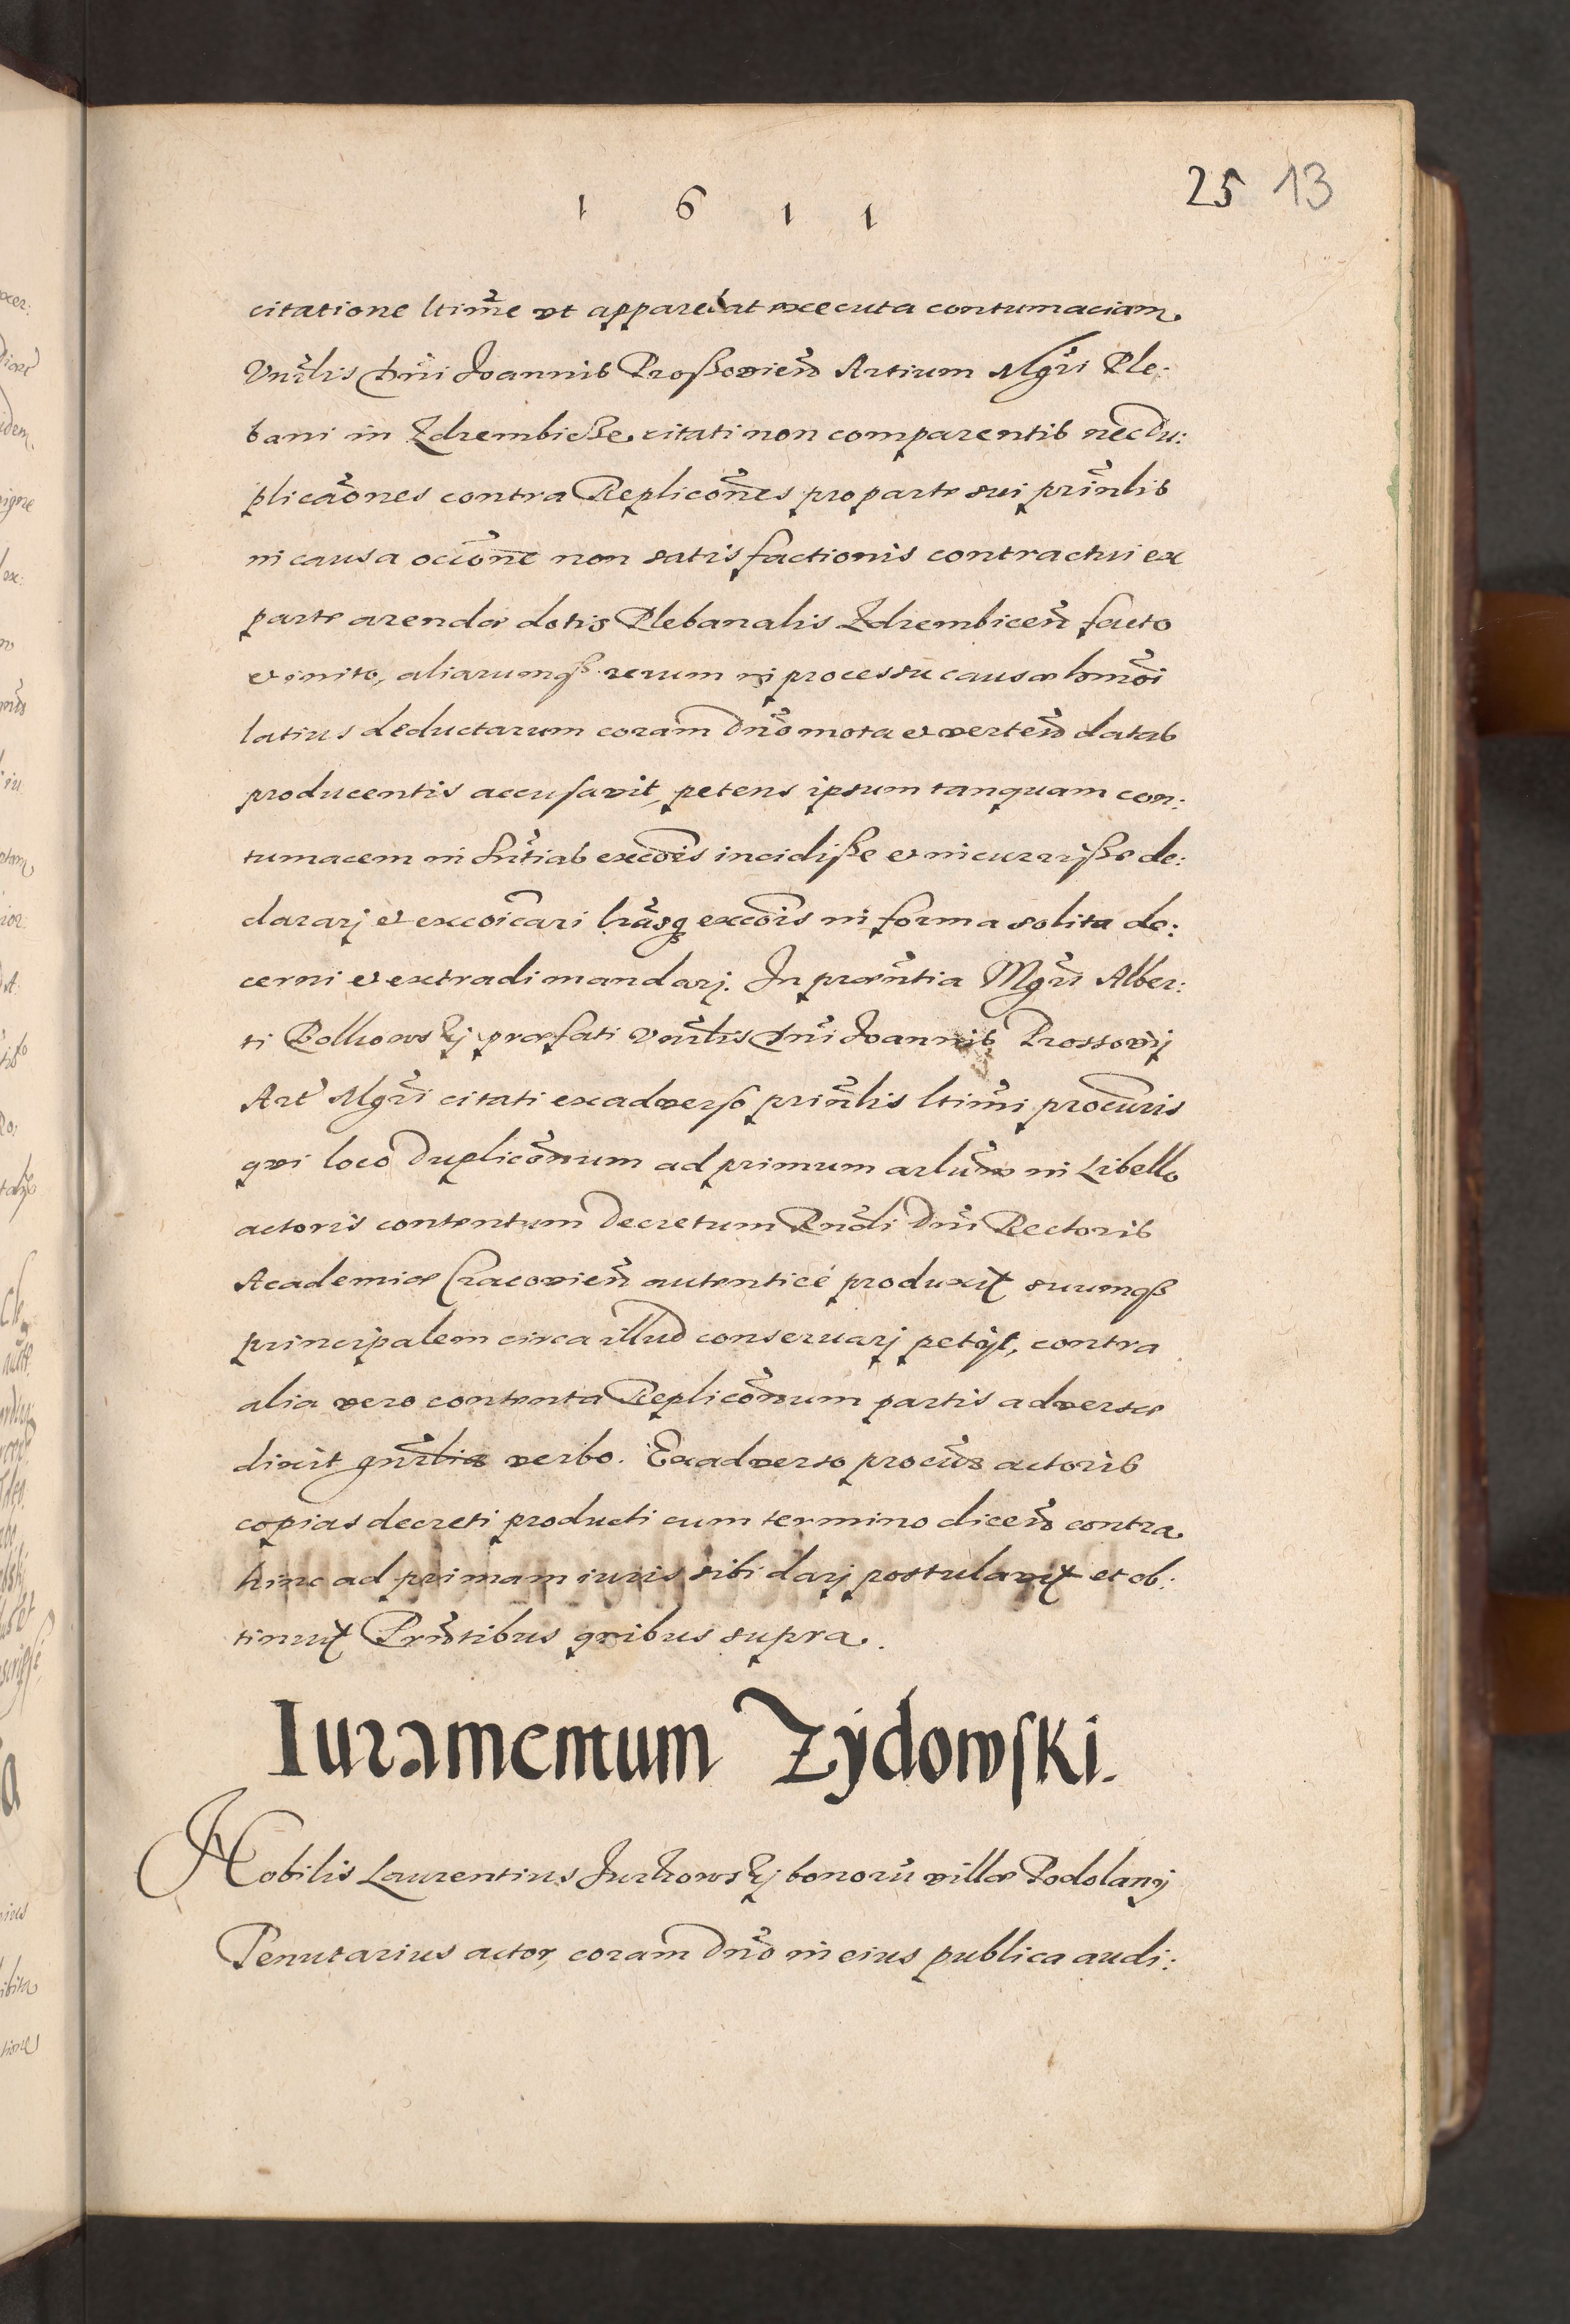 25 13
1 6 1 1
citatione ltime ut apparebat executa contumaciam
Vnrlis Dni Joannis Proßovien Artium Mgri Ple:
bani in Zdrembicße citati non comparentis nec du:
plicaones contra Replicones pro parte sui prinlis
in causa occione non satisfactionis contractui ex
parte arendæ dotis Plebanalis Zdrembicen facto
et inito, aliarumqß rerum in processu causæ hmoi
latius deductarum coram Dno mota et verten datas
producentis accusavit, petens ipsum tanquam con:
tumacem in sntias excois incidiße et incurriße de:
clararj et excoicari lrasq excois in forma solita de:
cerni et extradi mandarj. In præntia Mgri Alber:
ti præfati Vnrlis Dni Joannis Prossovij
Art Mgri citati exadverso prinlis ltimi procuris
qui loco Duplicnum ad primum arlum in Libello
actoris contentum Decretum Rndi Dni Rectoris
Academiæ Cracovien autenticé produxit suumqß
principalem circa illud conservarj petijt, contra
alia vero contenta Repliconum partis adversæ
dixit gnrlia verbo. Exadverso procur actoris
copias decreti producti cum termino dicen contra
hinc ad primam iuris sibi darj postulavit et ob:
tinuit Prntibus quibus supra.
Iuramentum Zÿdowski.
Nobilis Laurentius Jurkowskj bonorū villæ Podolanÿ
Tenutarius actor, coram Dno in eius publica audi: